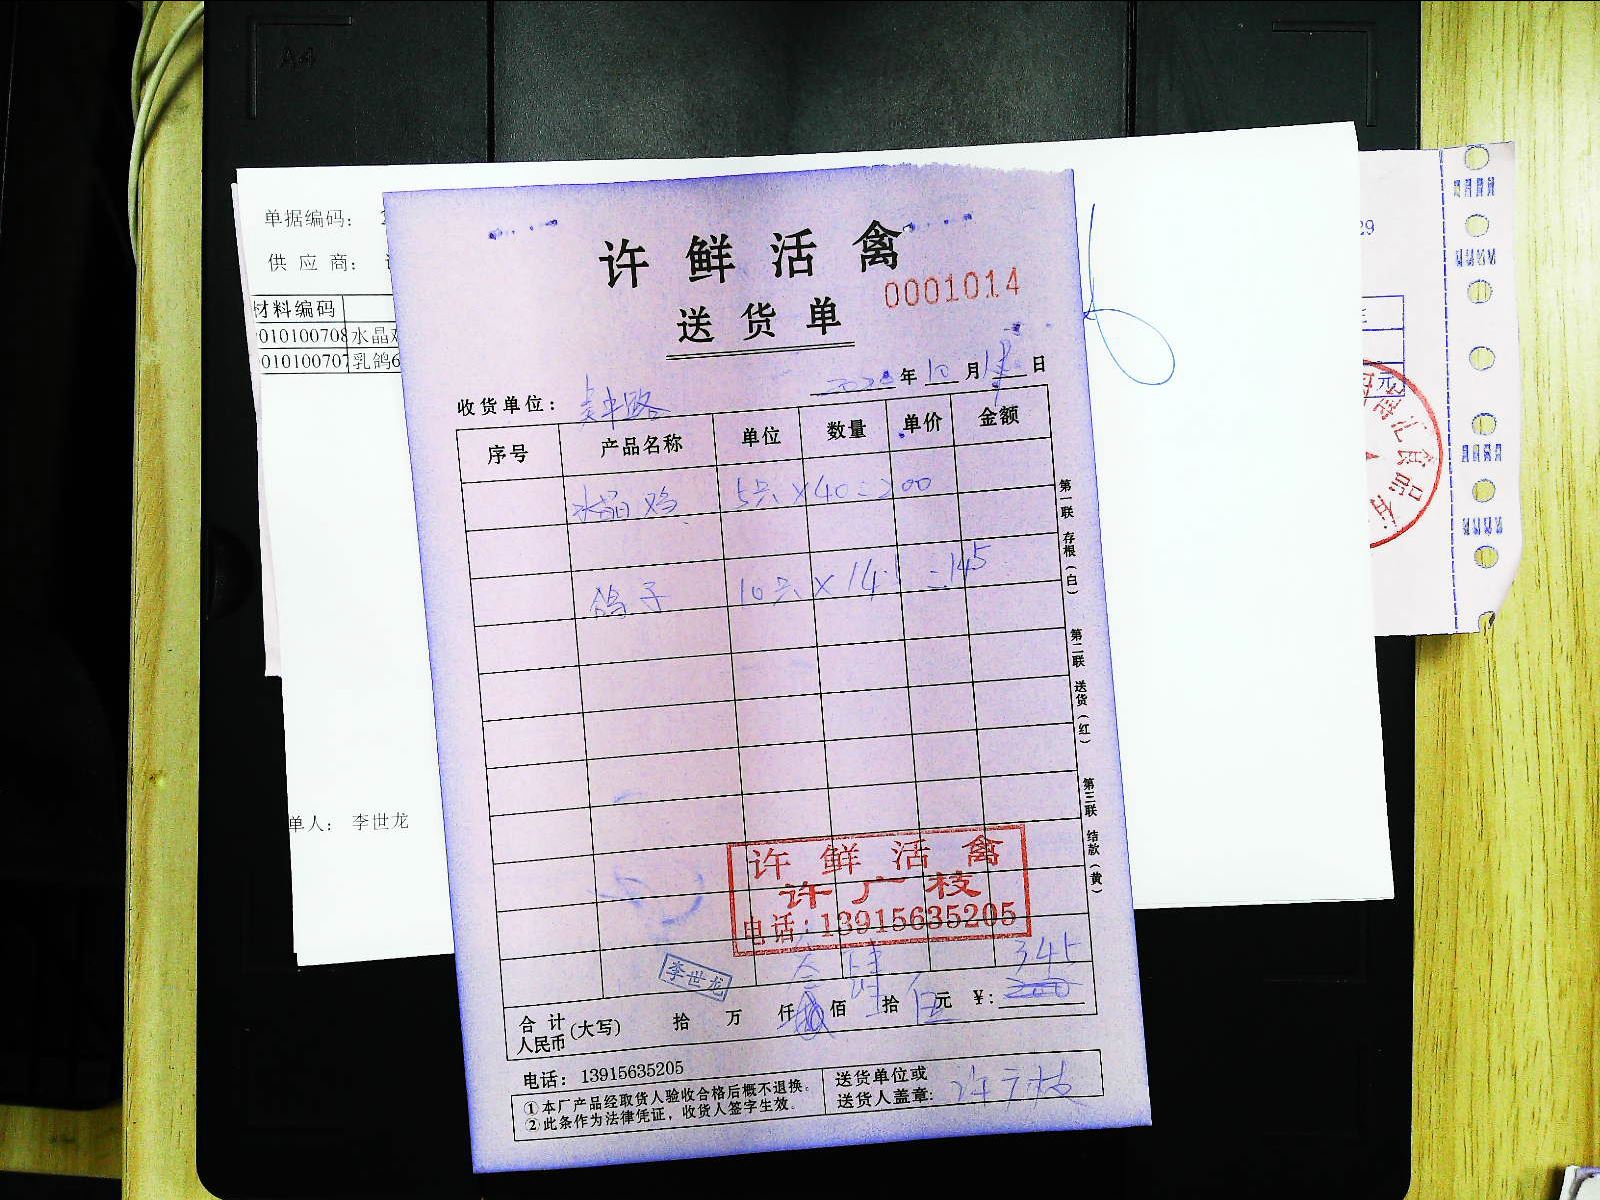 A4
单据编码：
供 应 商：
材料编码
010100708 水晶鸡
010100707 乳鸽6
单人： 李世龙
29
元
汇食品
许 鲜 活 禽
0001014
送 货 单
收货单位：
2020 年 10 月 日
序号 产品名称 单位 数量 单价 金额
水晶鸡 5只×40=200
鸽子 10只×14.5=145
第一联 存根（白）
第二联 送货（红）
第三联 结款（黄）
许 鲜 活 禽
许广枝
电话：13915635205
李世龙
叁 肆 345
合 计 人民币 (大写) 拾 万 仟 佰 拾 伍 元 ￥: 200
电话：13915635205
①本厂产品经取货人验收合格后概不退换。
②此条作为法律凭证，收货人签字生效。
送货单位或
送货人盖章: 许广枝